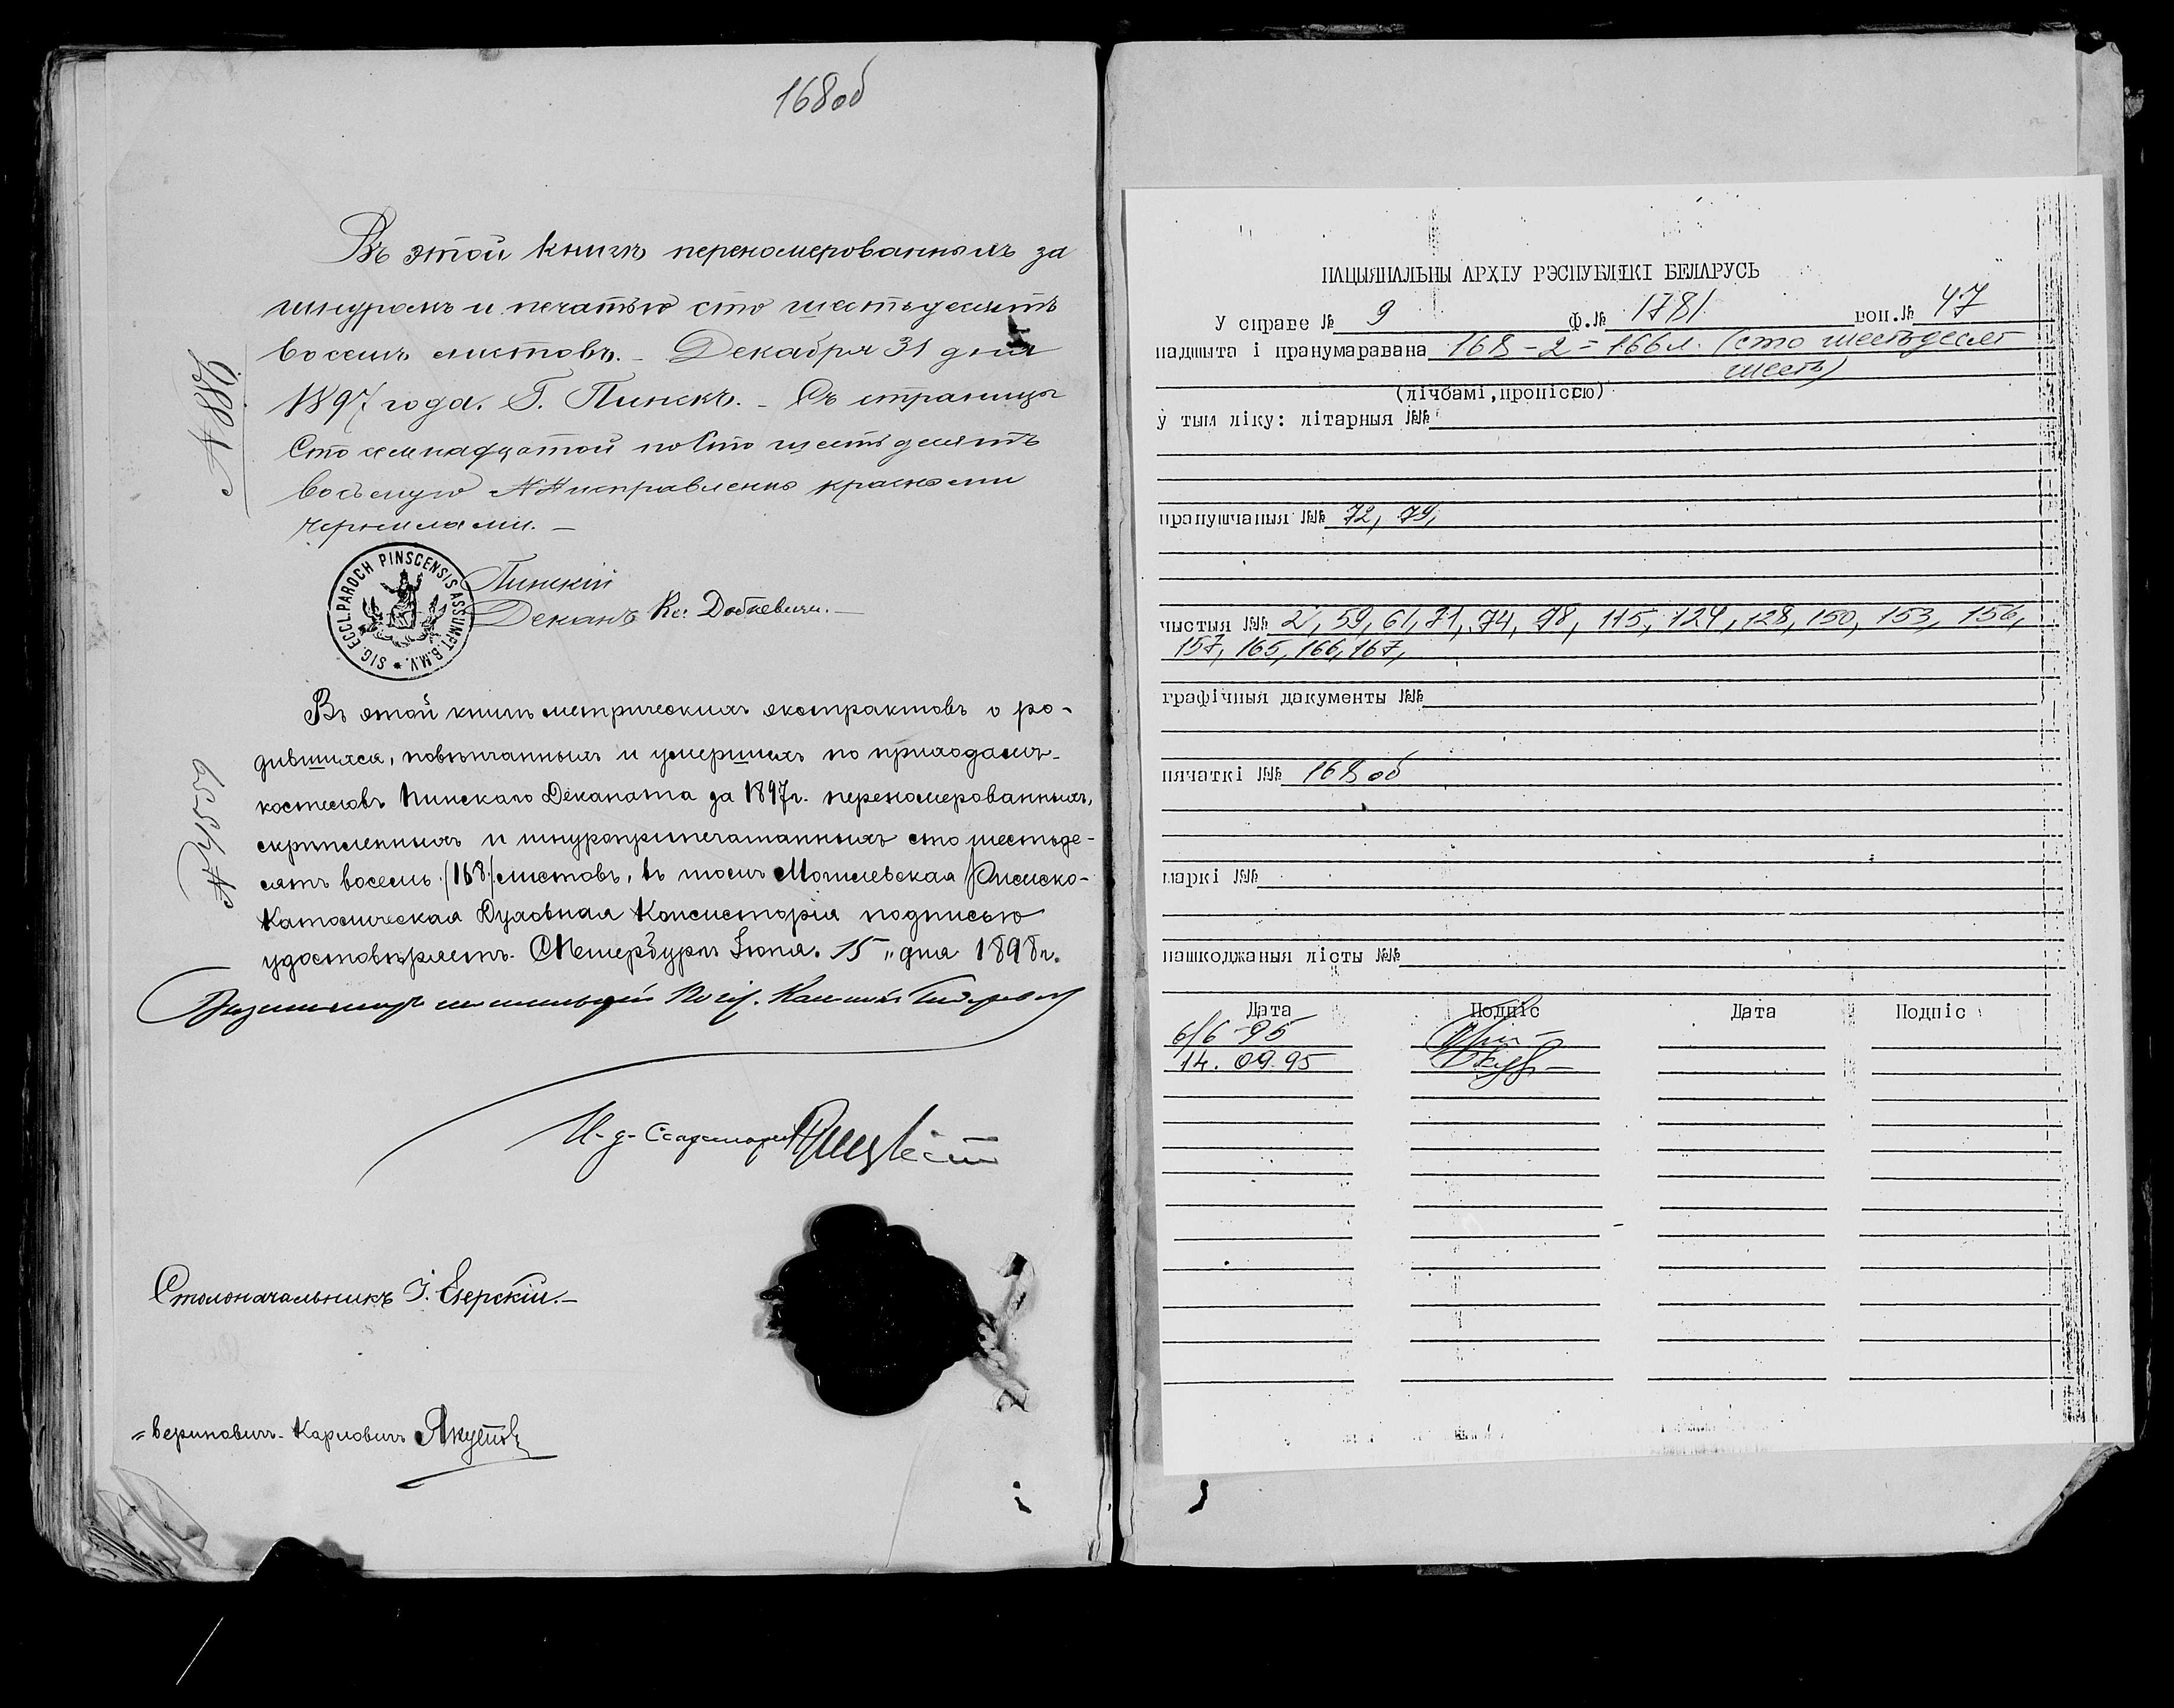 168 об
Въ этой книгѣ переномерованныхъ за
шнуромъ и печатью сто шестьдесятъ
восемь листовъ. – Декабря 31 дня
1897 года. Г. Пинскъ. – Съ страницы
Сто семнадцатой по Сто шестьдесятъ
восьмую №№ исправлено красными
чернилами. –
N 886
SIG. ECCL. PAROCH PINSCENSIS ASSUMPT. B.M.V. *
Пинскій
Деканъ Кс.
Въ этой книгѣ метрическихъ экстрактовъ о ро-
дившихся, повѣнчанныхъ и умершихъ по приходамъ
костеловъ Пинскаго Деканата за 1897 г. переномерованныхъ,
скрѣпленныхъ и шнуроприпечатанныхъ сто шестьде-
сятъ восемь (168) листовъ, въ томъ Могилевская Римско-
Католическая Духовная Консисторія подписью
удостовѣряетъ. СПетербургъ Іюня. 15 „ дня 1898 г.
И. д. Секретаря
Столоначальникъ І. Езерскій. –
НАЦЫЯНАЛЬНЫ АРХІУ РЭСПУБЛІКІ БЕЛАРУСЬ
У справе № 9 ф.№ 1781 воп.№ 47
падшыта і пранумаравана 168 – 2 = 166 л. (сто шестьдесят
шесть)
(лічбамі, пропіссю)
у тым ліку: літарныя №№
прапушчаныя №№ 72, 79,
чыстыя №№ 2, 59, 61, 71, 74, 78, 115, 124, 128, 150, 153, 156,
157, 165, 166, 167,
графічныя дакументы №№
пячаткі №№ 168 об
маркі №№
пашкоджаныя лісты №№
Дата Подпіс Дата Подпіс
6/6-95
14. 09. 95